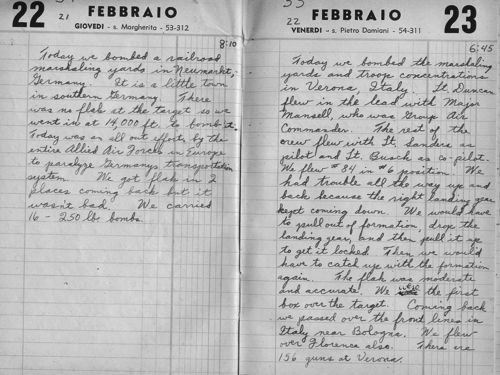 22 FEBBRAIO
21
GIOVEDI - s. Margherita - 53-312
8:10
Today we bombed a railroad
marshaling yards in Neumarkt,
Germany. It is a little town
in southern Germany. There
was no flak at the target so we
went in at 14,000 ft. to bomb it.
Today was an all out effort by the
entire Allied Air Forces in Europe
to paralyze Germanys transportation
system. We got flak in 2
places coming back but it
wasn't bad. We carried
16 - 250 lb bombs.
22 FEBBRAIO 23
VENERDI - s. Pietro Damiani - 54-311
6:45
Today we bombed the marshaling
yards and troop concentrations
in Verona, Italy. Lt. Duncan
flew in the lead with Major
Mansell, who was Group Air
Commander. The rest of the
crew flew with Lt. Sanders as
pilot and Lt. Busch as co-pilot.
We flew #84 in #6 position. We
had trouble all the way up and
back because the right landing gear
kept coming down. We would have
to pull out of formation, drop the
landing gear, and then pull it up
to get it locked. Then we would
have to catch up with the formation
again. The flak was moderate
and accurate. We were the first
box over the target. Coming back
we passed over the front lines in
Italy near Bologna. We flew
over Florence also. There are
156 guns at Verona.